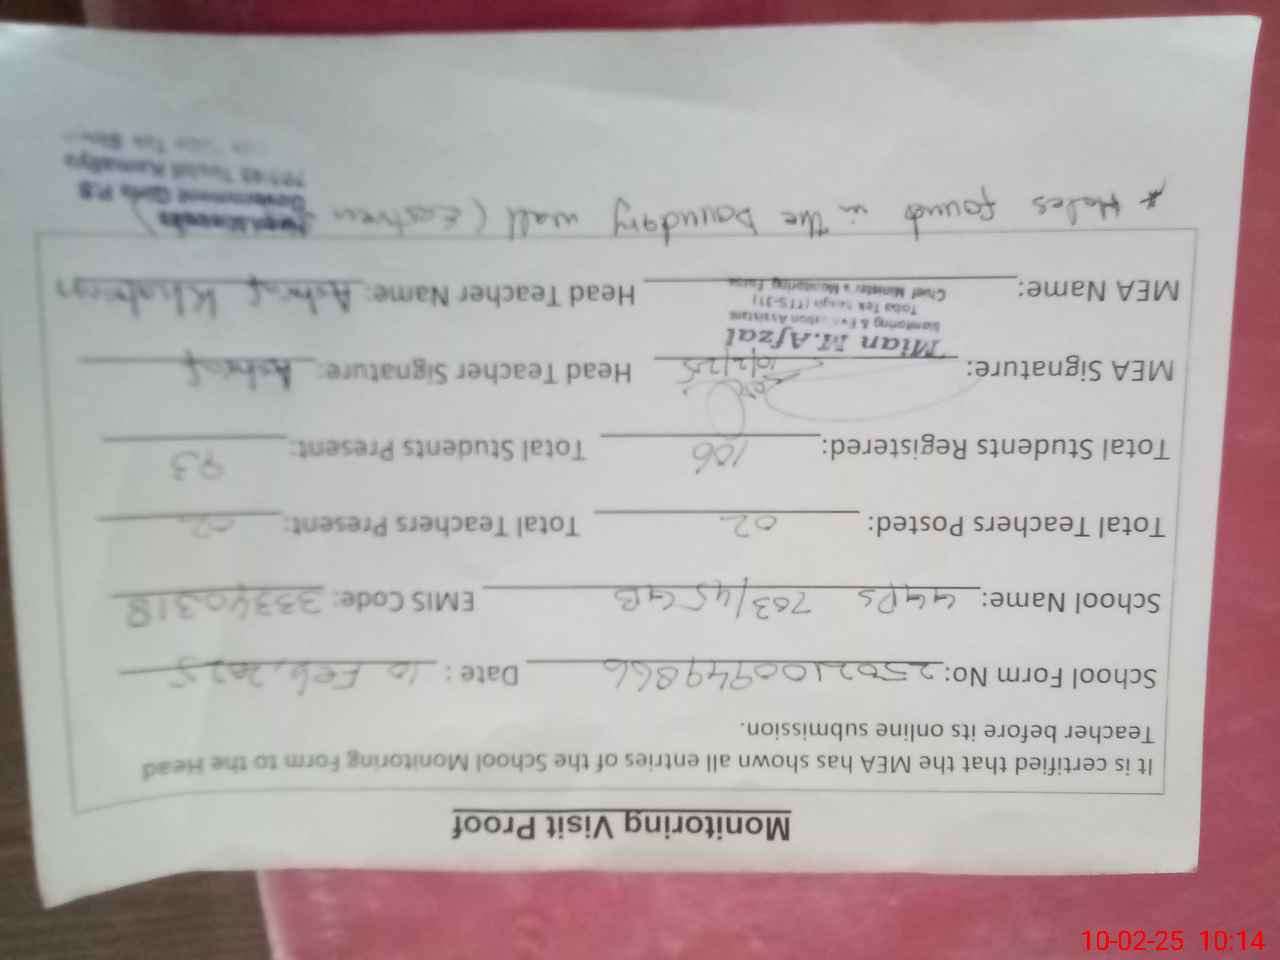 Monitoring Visit Proof
It is certified that the MEA has shown all entries of the School Monitoring Form to the Head
Teacher before its online submission.
School Form No: 25021009949866 Date: 10 Feb, 2025
School Name: GGPS 703/45 GB EMIS Code: 33340318
Total Teachers Posted: 02 Total Teachers Present: 02
Total Students Registered: 106 Total Students Present: 93
MEA Signature: 10/2/25 Head Teacher Signature: Ashraf
Mian M.Afzal
Monitoring & Evaluation Assistant
Toba Tek Singh (TTS-31)
Chief Minister's Monitoring Force
MEA Name: Head Teacher Name: Ashraf Khatoon
* Holes found in the boundary wall (Eastren)
Government Girls P.S
Tehsil Kamalia
10-02-25 10:14